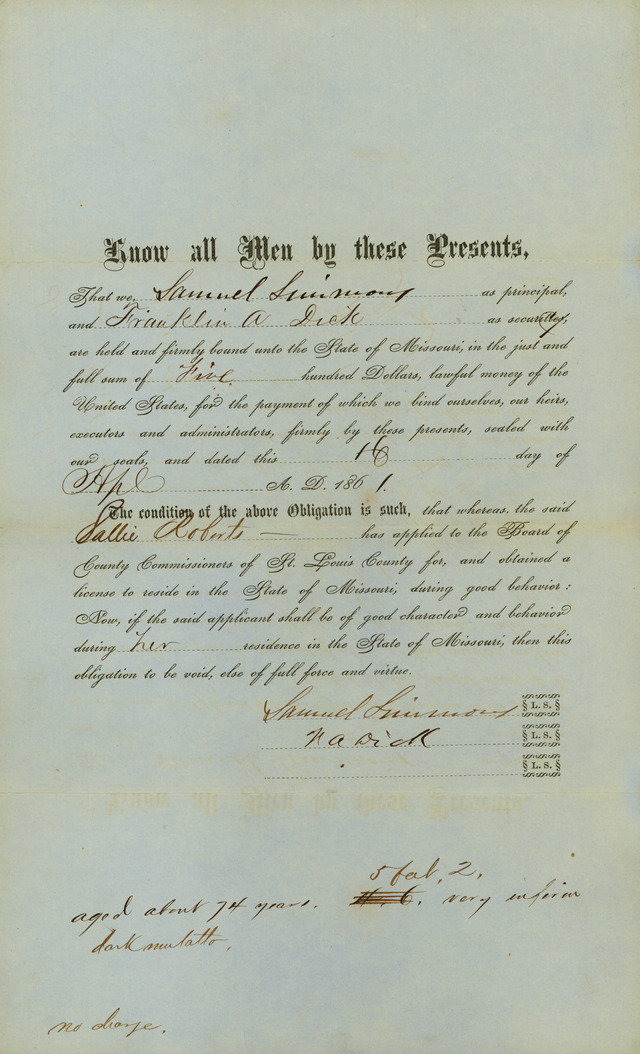 Know all Men by these Presents,
That we, Samuel Simmons as principal,
and Franklin A Dick as security,
are held and firmly bound unto the State of Missouri, in the just and
full sum of Five hundred Dollars, lawful money of the
United States, for the payment of which we bind ourselves, our heirs,
executors and administrators, firmly by these presents, sealed with
our seals, and dated this 16 day of
Apl A. D. 1861.
The condition of the above Obligation is such, that whereas, the said
Sallie Roberts — has applied to the Board of
County Commissioners of St. Louis County for, and obtained a
license to reside in the State of Missouri, during good behavior:
Now, if the said applicant shall be of good character and behavior
during her residence in the State of Missouri, then this
obligation to be void, else of full force and virtue.
Samuel Simmons L. S.
F A Dick L. S.
L. S.
5 feet, 2,
aged about 74 years. very infirm
dark mulatto.
no charge.